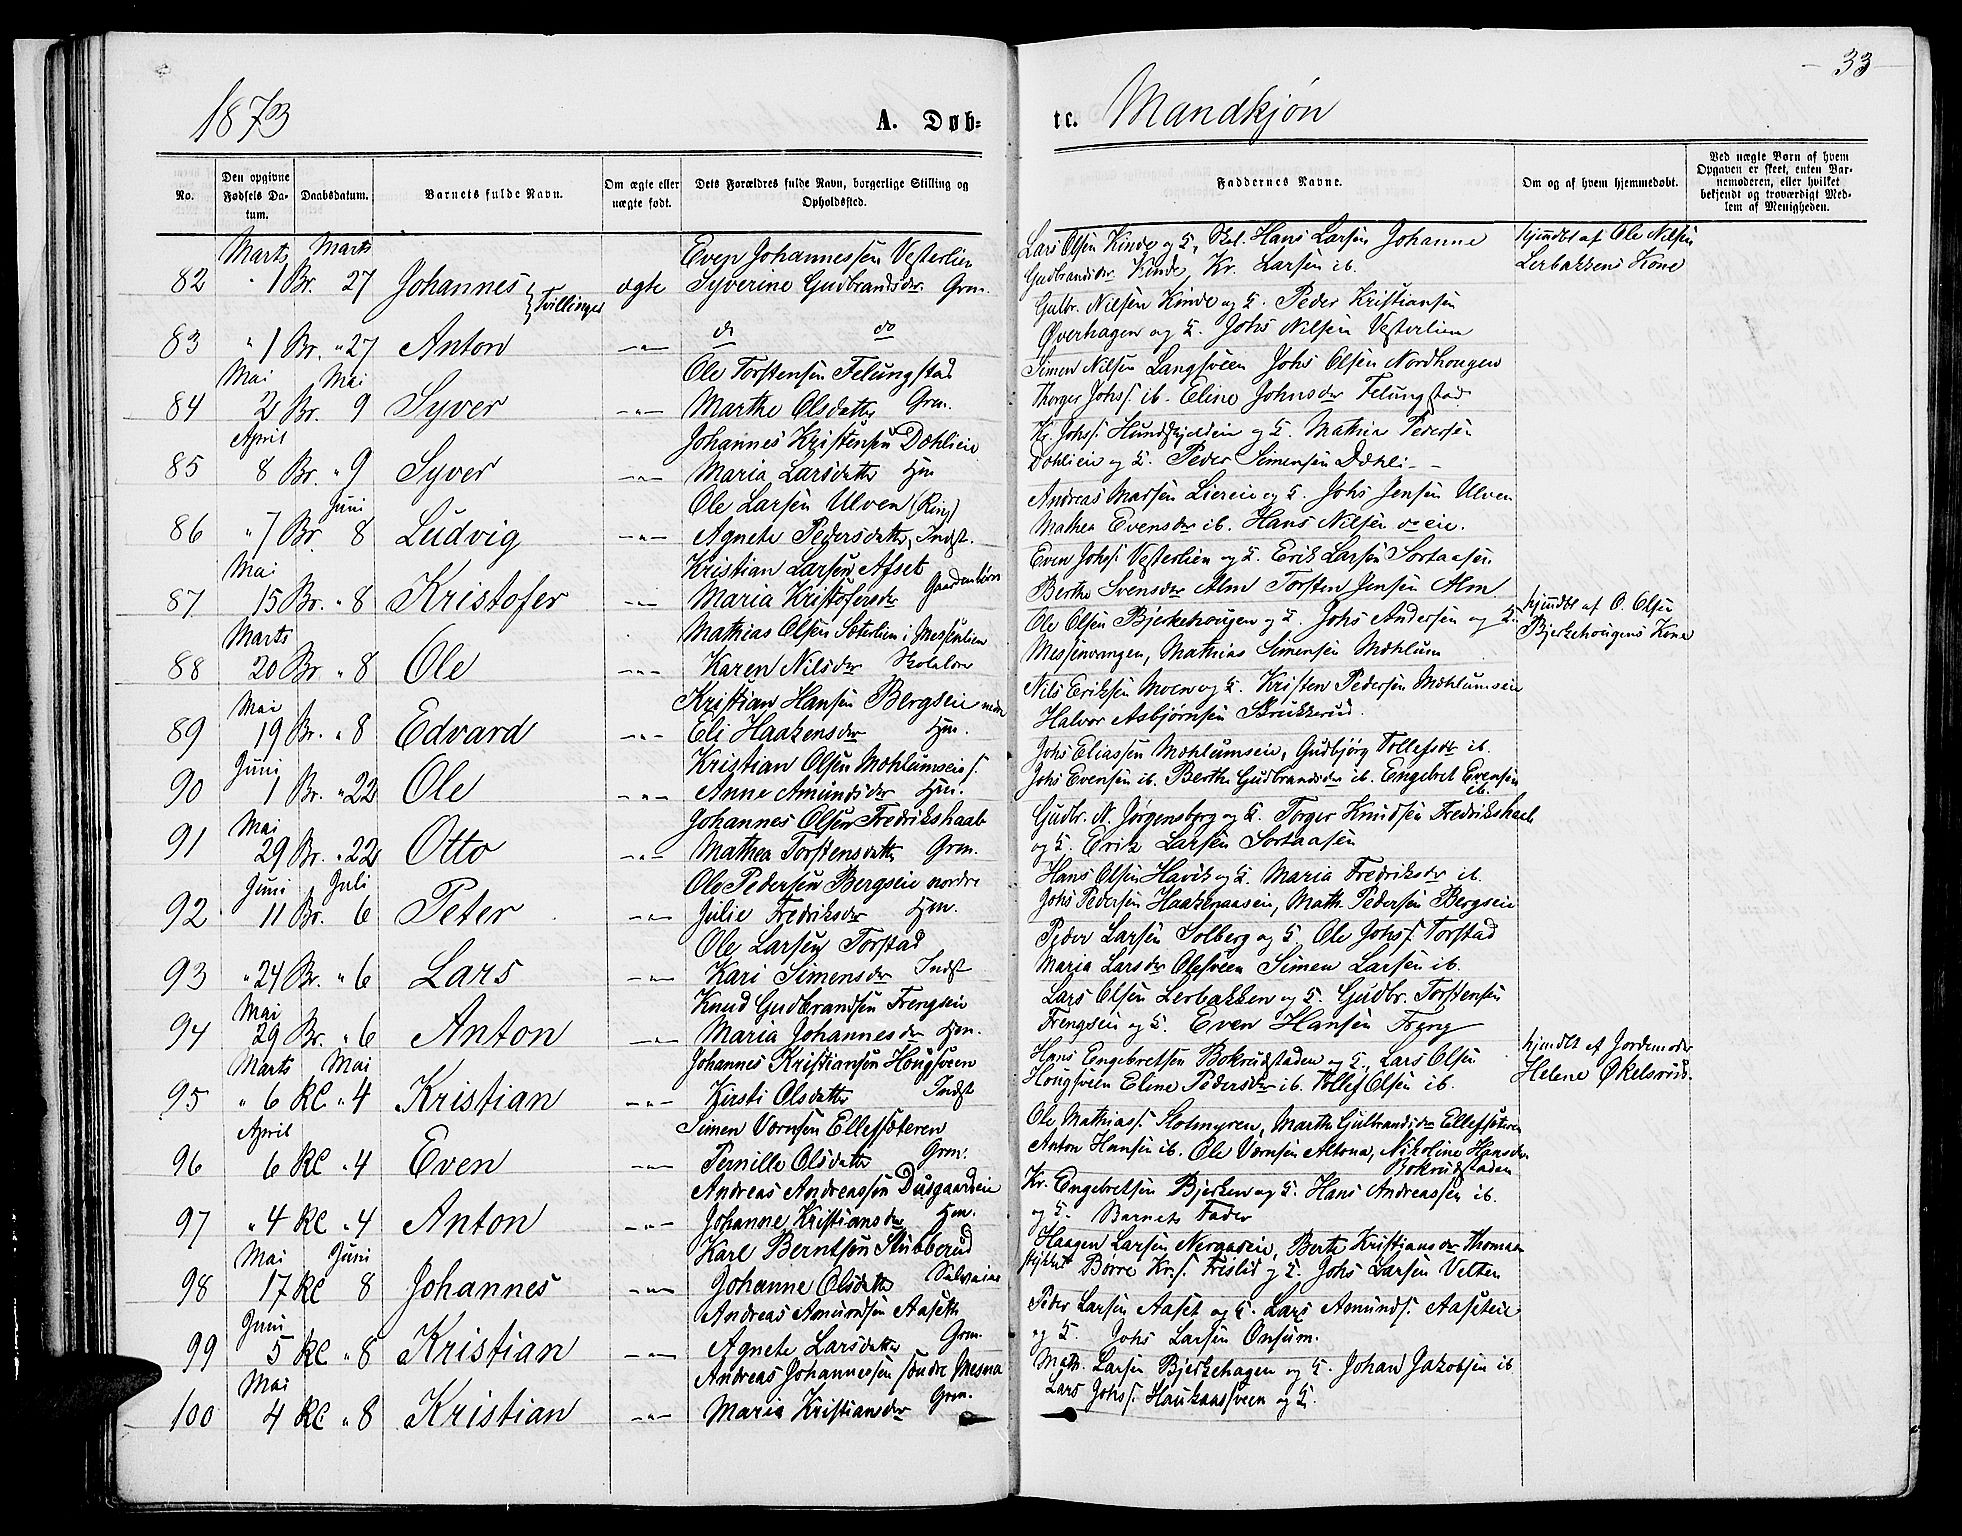 33
1873 A. Døb- te. Mandkjøn
No.
Den opgivne Fødsels Da- tum.
Daabsdatum.
Barnets fulde Navn.
Om ægte eller uægte født.
Dets Forældres fulde Navn, borgerlige Stilling og Opholdssted.
Faddernes Navne.
Om og af hvem hjemmedøbt.
Ved uægte Børn af hvem Opgaven er skeet, enten Bar- nemoderen, eller hvilket bekjendt og troværdigt Med- lem af Menigheden.
Marts Marts Even Johannessen Vesterlien Lars Olsen Kinde og K., Hans Larsen Johanne hjmdbt af Ole Nilsen
82 1 Br. 27 Johannes Tvillinger ægte Syverine Gudbrandsdr Grm. Gudbrandsdr Kinde, Kr. Larsen ib. Lerbakkens Kone
Gulbr. Nilsen Kinde og K. Peder Kristiansen
83 " 1 Br. " 27 Anton -"- do do Øverhagen og K. Johs Nilsen Vesterlien
Mai Mai Ole Torstensen Felungstad Simen Nilsen Langsveen Johs Olsen Nordhougen
84 2 Br. 9 Syver -"- Marthe Olsdatter Grm. Thorger Johs. ib. Eline Johnsdr Felungstad
April Johannes Kristensen Dæhlieie Kr. Johs. og K. Mathia Pedersen
85 8 Br. " 9 Syver -"- Maria Larsdatter Hm Dæhlieie og K. Peder Simensen Dæhli- -
Juni Ole Larsen Ulven (Ring) Andreas Larsen Liereie og K. Johs Jensen Ulven
86 " 7 Br. 8 Ludvig -"- Agnete Pedersdatter, Indst. Mathea Evensdr ib. Hans Nilsen do eie.
Mai Kristian Larsen Afset Even Johs. Vesterlien og K. Erik Larsen Sortaasen
87 15 Br. " 8 Kristofer -"- Maria Kristofersdr Berthe Svensdr Alm Torsten Jensen Alm
Marts Mathias Olsen Sæterlien i Messenlien Ole Olsen Bjerkehougen og K. Johs Andersen og K. hjmdbt af O. Olsen
88 20 Br. " 8 Ole -"- Karen Nilsdr Skolelær Messenvangen, Mathias Simensen Mæhlum Bjerkehougens Kone
Mai Kristian Hansen Bergseie Nils Eriksen Moen og K. Kristen Pedersen Mæhlumseie
89 19 Br. " 8 Edvard -"- Eli Haakensdr Hm. Halvor Asbjørnsen Skrukkerud.
Juni Kristian Olsen Mæhlumseie Johs Eliassen Mæhlumseie, Gudbjørg Tollefsdr ib.
90 1 Br. " 22 Ole -"- Anne Amundsdr Hm. Johs Evensen ib. Berthe Gudbrandsdr ib. Engebret Evensen ib.
Mai Johannes Olsen Fredrikshaab Gudbr. N. Jørgensberg og K. Torger Knudsen Fredrikshaab
91 29 Br. " 22 Otto -"- Mathea Torstensdatter Grm. og K. Erik Larsen Sortaasen
Juni Juli Ole Pedersen Bergseie nordre Hans Olsen Havik og K. Maria Fredriksdr ib.
92 11 Br. 6 Peter -"- Julie Fredriksdr Hm. Johs Pedersen Haakenaasen, Math. Pedersen Bergseie
Ole Larsen Torstad Peder Larsen Solberg og K. Ole Johs. Torstad
93 " 24 Br. " 6 Lars -"- Kari Simensdr Indst Maria Larsdr Olesveen Simen Larsen ib.
Mai Knud Gudbrandsen Frengseie Lars Olsen Lerbakken og K. Gudbr. Torstensen
94 29 Br. " 6 Anton -"- Maria Johannesdr Hm. Frengseie og K. Even Hansen Freng
Marts Mai Johannes Kristiansen Hougsveen Hans Engebretsen Bokrudstaden og K., Lars Olsen hjmdbt af Jordemoder
95 " 6 Kl " 4 Kristian -"- Kirsti Olsdatter Indst Hougsveen Eline Pedersdr ib. Tollef Olsen ib. Helene Økelsrud.
April Simen Vornsen Ellefsæteren Ole Mathiass. Stolmyren, Marthe Gulbrandsdr Ellefsæteren
96 6 Kl " 4 Even -"- Pernille Olsdatter Grm. Anton Hansen ib. Ole Vornsen Altona, Nikoline Hansdr Bokrudstaden
Andreas Andreassen Dusgaardeie Kr. Engebretsen Bjerken og K. Hans Andreassen ib.
97 " 4 Kl " 4 Anton -"- Johanne Kristiansdr Hm. og K. Barnets Fader
Mai Juni Karl Berntsen Stubberud Haagen Larsen Nergaseie, Berte Kristiansdr Thomas
98 17 Kl 8 Johannes -"- Johanne Olsdatter stykket Børre Kr. s. Frislid og K. Johs Larsen Velten
Juni Andreas Amundsen Aaseth Peder Larsen Aaset og K. Lars Amunds. Aaseteie
99 5 Kl " 8 Kristian -"- Agnete Larsdatter Grm. og K. Johs Larsen Onsum.
Mai Andreas Johannessen søndre Mesna Math. Larsen Bjerkehagen og K. Johan Jakobsen ib
100 4 Kl " 8 Kristian -"- Maria Kristiansdr Grm. Lars Johs. Haukaassveen og K.